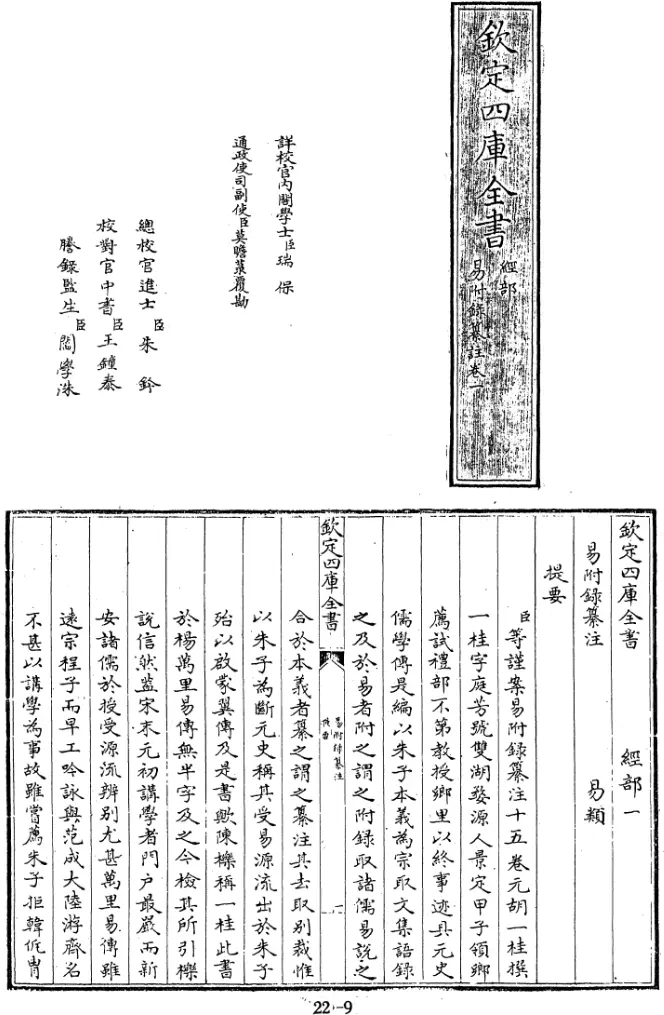 欽定四庫全書
經部
易附錄纂註卷一
詳校官內閣學士臣瑞保
通政使司副使臣莫瞻菉覆勘
總校官進士臣朱鈐
校對官中書臣王鍾泰
謄錄監生臣閻學洙
欽定四庫全書 經部一
易附錄纂注 易類
提要
臣等謹案易附錄纂注十五卷元胡一桂撰
一桂字庭芳號雙湖婺源人景定甲子領鄉
薦試禮部不第教授鄉里以終事迹具元史
儒學傳是編以朱子本義為宗取文集語錄
之及於易者附之謂之附錄取諸儒易說之
欽定四庫全書
易附錄纂注
提要
一
合於本義者纂之謂之纂注其去取別裁惟
以朱子為斷元史稱其受易源流出於朱子
殆以啟蒙翼傳及是書歟陳櫟稱一桂此書
於楊萬里易傳無半字及之今檢其所引櫟
說信然葢宋末元初講學者門户最嚴而新
安諸儒於授受源流辨别尤甚萬里易傳雖
遠宗程子而早工吟詠與范成大陸游齊名
不甚以講學為事故雖嘗薦朱子拒韓侂胄
22-9